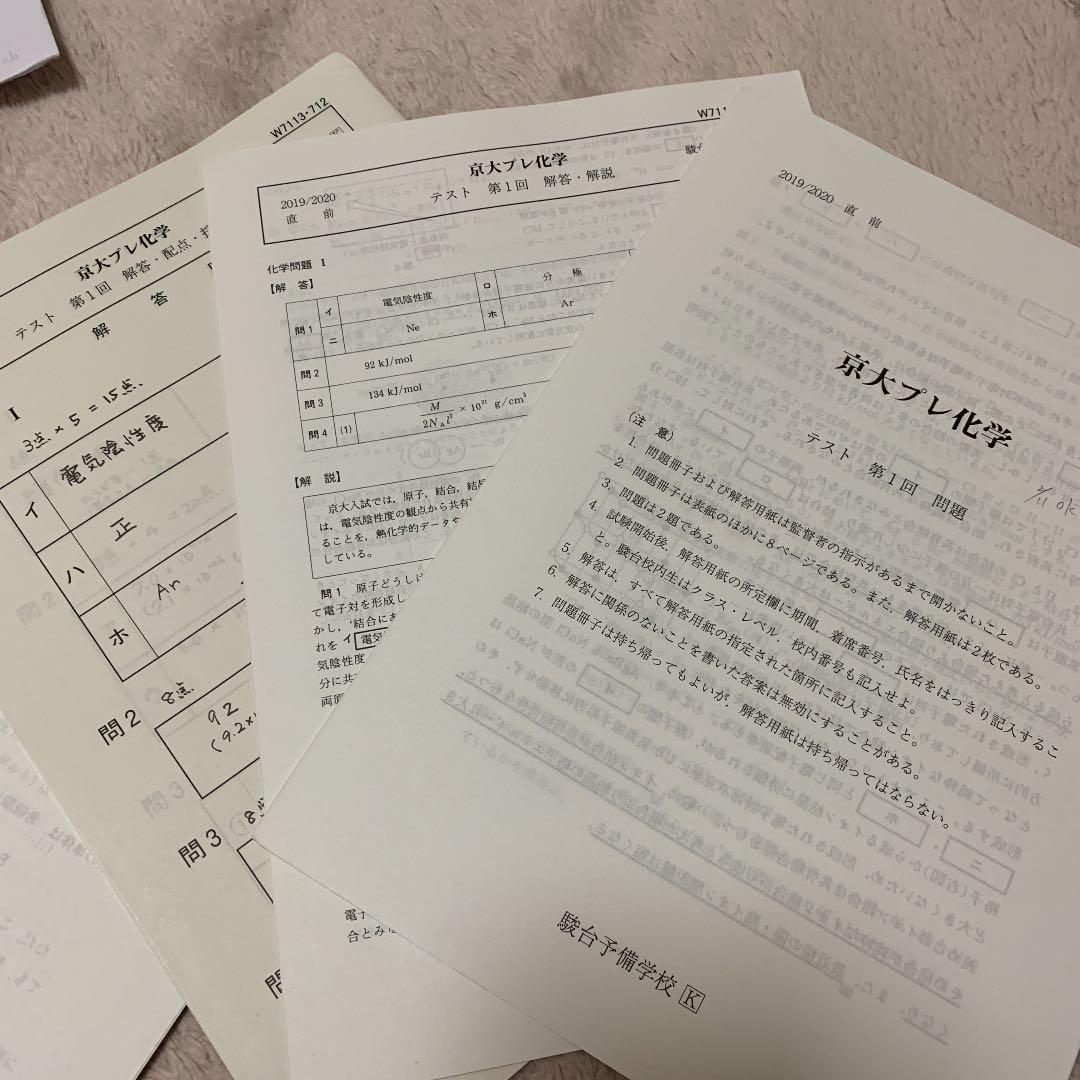 W7113-712
京大プレ化学
テスト 第1回 解答・配点・
解 答
I
3点×5=15点
イ 電気陰性度
ハ 正
ホ Ar
問2 8点
92
(9.2×1
問3 8点
問
W711
2019/2020
直 前
京大プレ化学
テスト 第1回 解答・解説
駿台
化学問題 I
【解 答】
問1 イ 電気陰性度 ロ 分 極
ニ Ne ホ Ar
問2 92 kJ/mol
問3 134 kJ/mol
問4 (1) M/2NAl³ × 10²¹ g/cm³
【解 説】
京大入試では,原子,結合,結
は,電気陰性度の観点から共有
ることを,熱化学的データや
している。
問1 原子どうしに
て電子対を形成し
かし,結合にあ
れを イ 電気
気陰性度
分に共
両原
電
合とみな
2019/2020 直 前
京大プレ化学
テスト 第1回 問題
2/11 ok
(注 意)
1. 問題冊子および解答用紙は監督者の指示があるまで開かないこと。
2. 問題冊子は表紙のほかに8ページである。また,解答用紙は2枚である。
3. 問題は2題である。
4. 試験開始後,解答用紙の所定欄に期間,着席番号,氏名をはっきり記入するこ
と。駿台校内生はクラス・レベル,校内番号も記入せよ。
5. 解答は,すべて解答用紙の指定された箇所に記入すること。
6. 解答に関係のないことを書いた答案は無効にすることがある。
7. 問題冊子は持ち帰ってもよいが,解答用紙は持ち帰ってはならない。
駿台予備学校 K